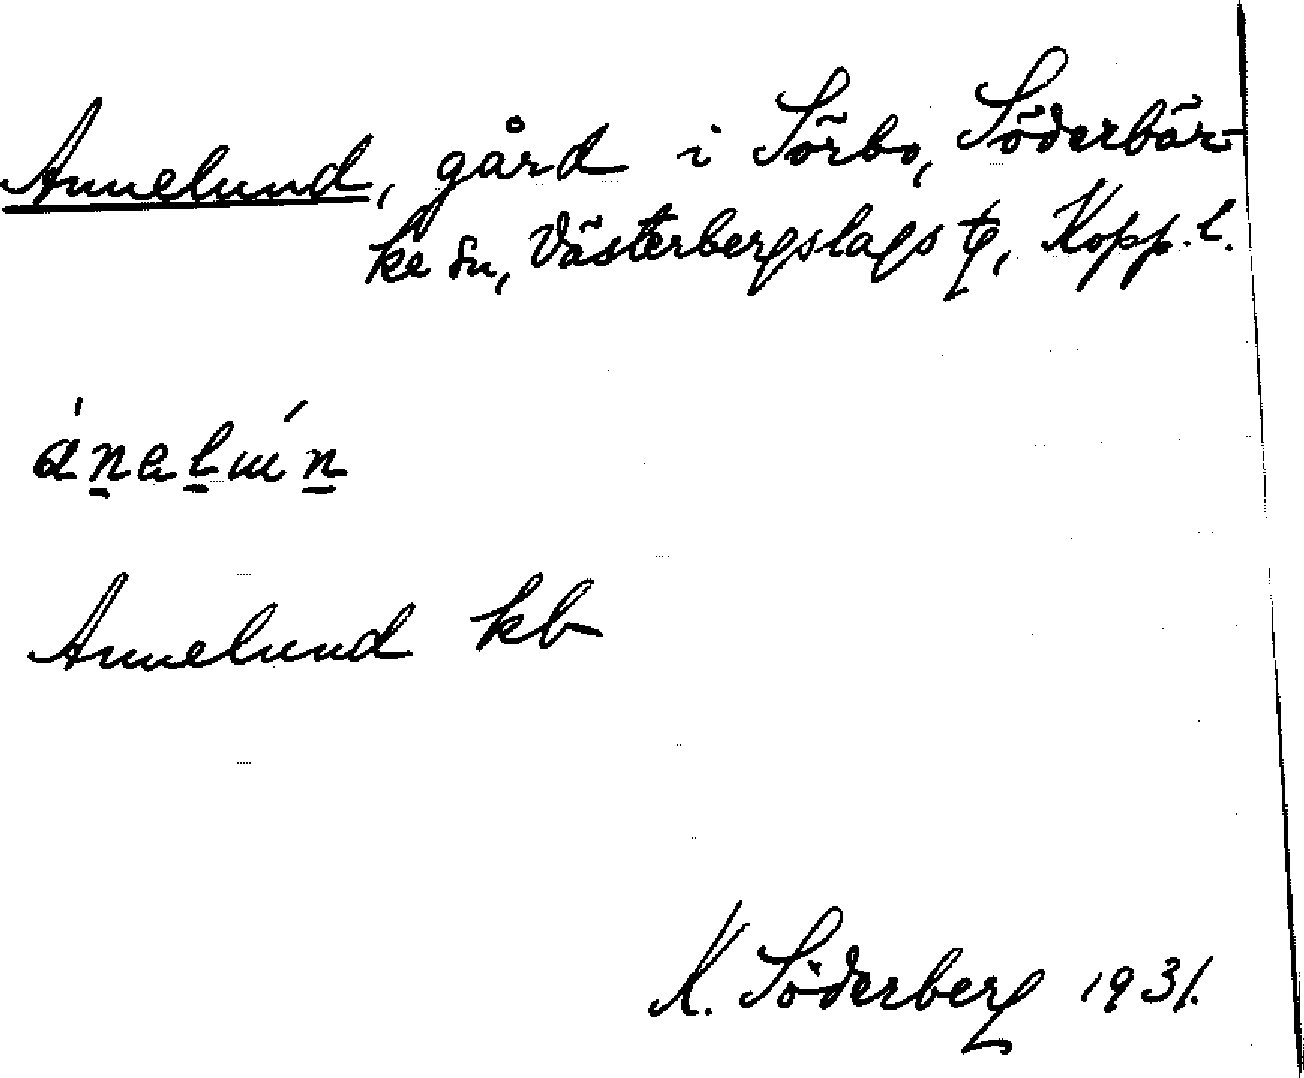 Annelund, gård i Sörbo, Söderbär-
ke sn, Västerbergslags tg, Kopp. l.
Annelund kb
K. Söderberg 1931.